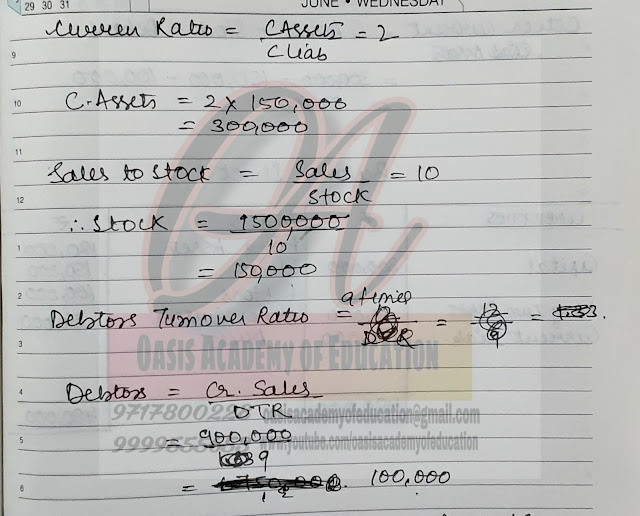 29 30 31
JUNE • WEDNESDAY
Current Ratio = C Assets / C Liab = 2
9
10
C. Assets = 2 x 150,000
= 300,000
11
Sales to Stock = Sales / Stock = 10
12
∴ Stock = 1500,000 / 10
1
= 150,000
2
Debtors Turnover Ratio = 9 times = 12 / 9 =
3
OASIS ACADEMY OF EDUCATION
4
Debtors = Cr. Sales / DTR
oasisacademyofeducation@gmail.com
5
= 900,000 / 9
www.youtube.com/oasisacademyofeducation
6
= 100,000